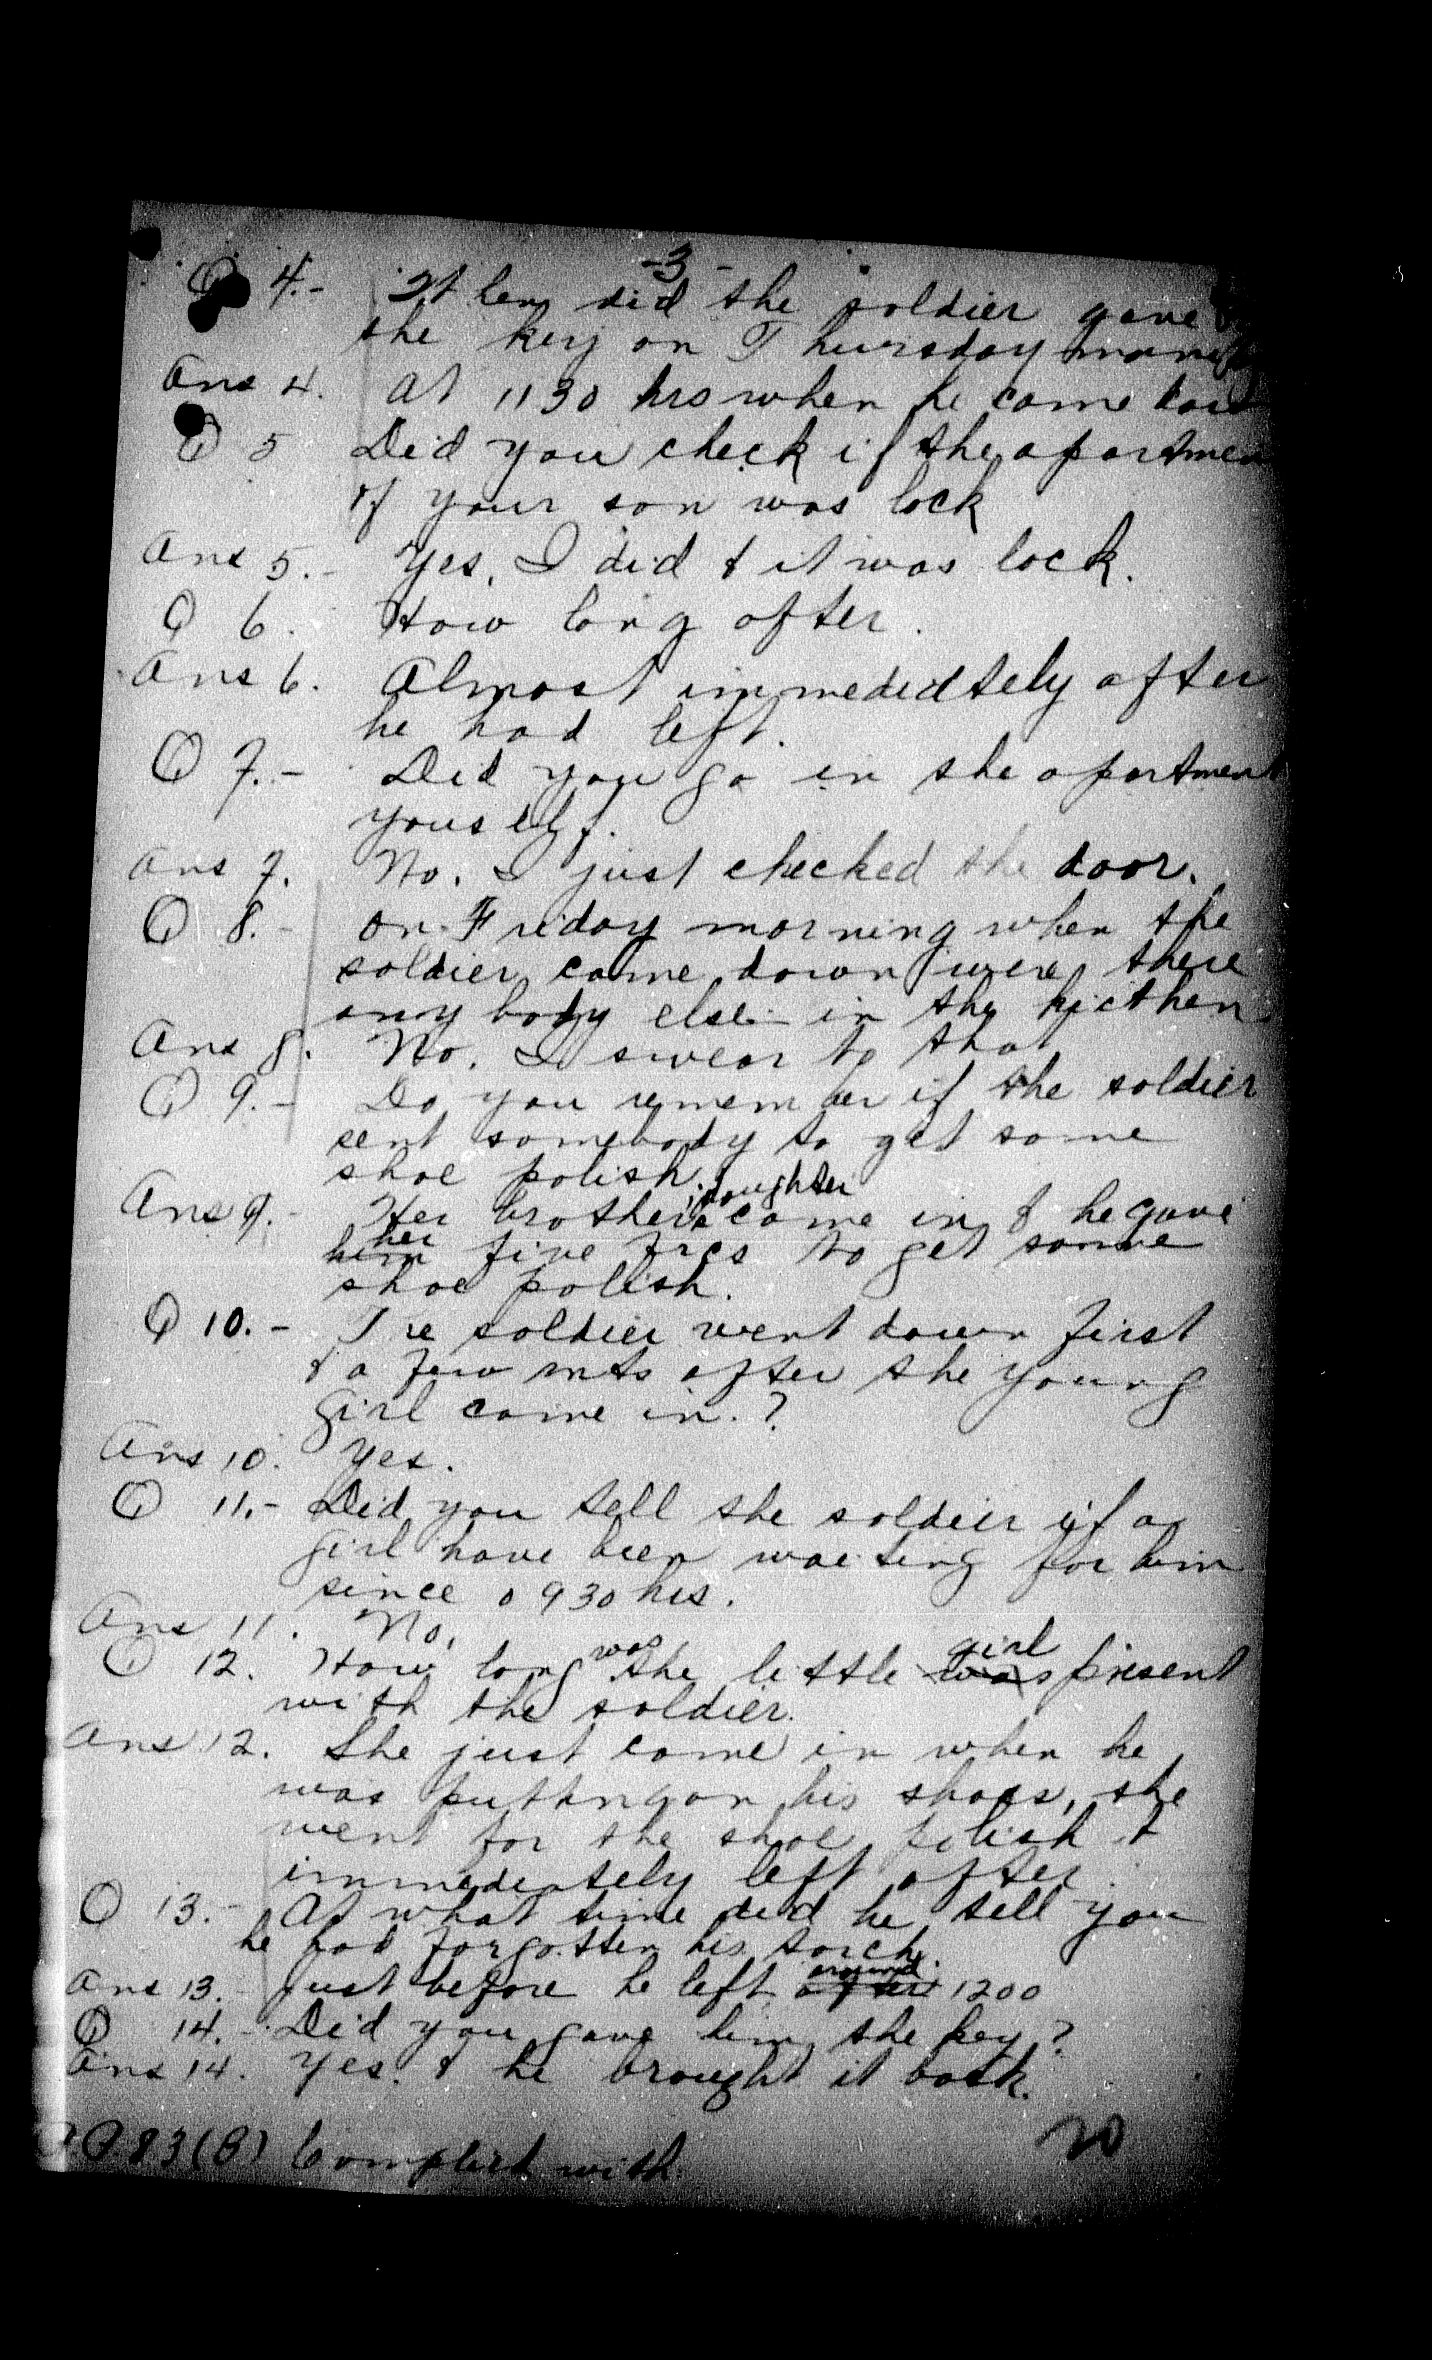 -3-
Q 4.- When did the soldier gave
the key on Thursday
Ans 4. At 1130 hrs when he came
Q 5 Did you check if the apartmen
of your son was lock
Ans 5.- Yes, I did & it was lock.
Q 6. How long after.
Ans 6. Almost immedidtely after
he had left.
Q 7.- Did you go in the apartment
youself.
Ans 7. No. I just checked the door.
Q 8.- On Friday morning when the
soldier came down were there
any body else in the kicthen
Ans 8. No. I swear to that
Q 9.- Do you remember if the soldier
sent somebody to get some
shoe polish.
daughter
Ans 9.- Her brothers came in & he gave
her
him five frcs to get some
shoe polish.
Q 10.- The soldier went down first
& a few mts after the young
girl came in.?
Ans 10. Yes.
Q 11.- Did you tell the soldier if a
girl have been waiting for him
since 0930 hrs.
Ans 11. No.
was girl
Q 12. How long the little was present
with the soldier.
Ans 12. She just came in when he
was puttng on his shoes, she
went for the shoe polish &
immediately left after.
Q 13.- At what time did he tell you
he had forgotten his torch.
around
Ans 13.- Just before he left after 1200
Q 14.- Did you gave him the key?
Ans 14. Yes. & he brought it back.
83(B) Complied with.
20